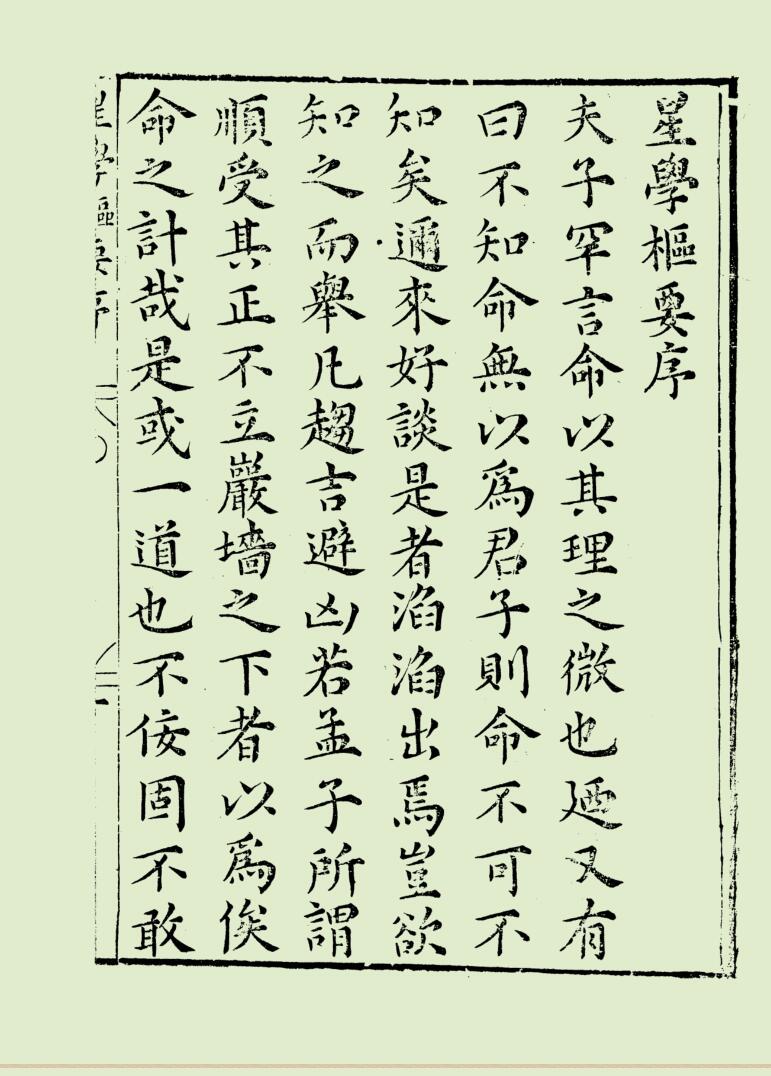 星學樞要序
夫子罕言命以其理之微也廼又有
曰不知命無以爲君子則命不可不
知矣邇來好談是者滔滔出焉豈欲
知之而舉凡趨吉避凶若孟子所謂
順受其正不立巖墻之下者以爲俟
命之計哉是或一道也不佞固不敢
星學樞要序
一